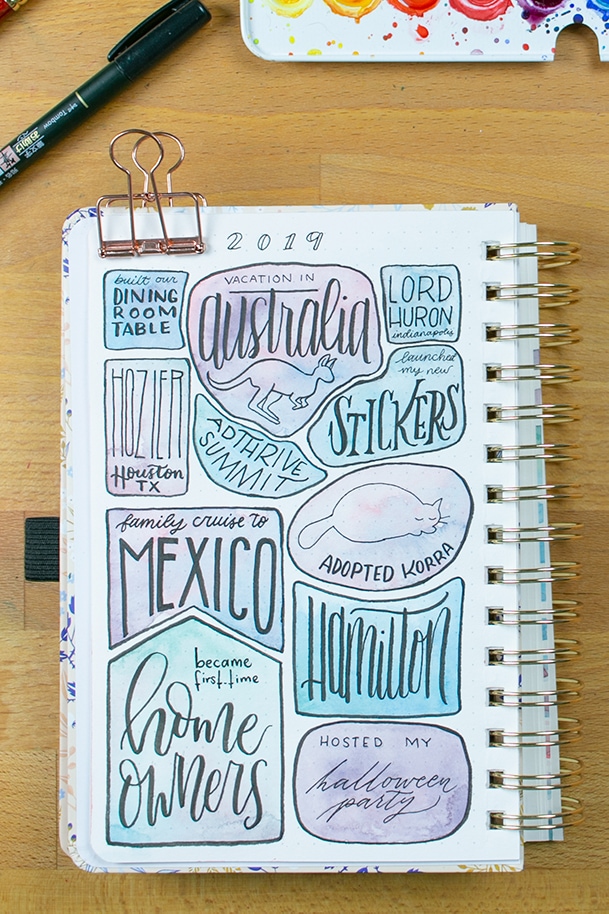 Tombow
2019
built our
DINING
ROOM
TABLE
VACATION IN
australia
LORD
HURON
indianapolis
launched
my new
STICKERS
HOZIER
Houston
TX
ADTHRIVE
SUMMIT
ADOPTED KORRA
family cruise to
MEXICO
Hamilton
became
first-time
home
owners
HOSTED MY
halloween
party